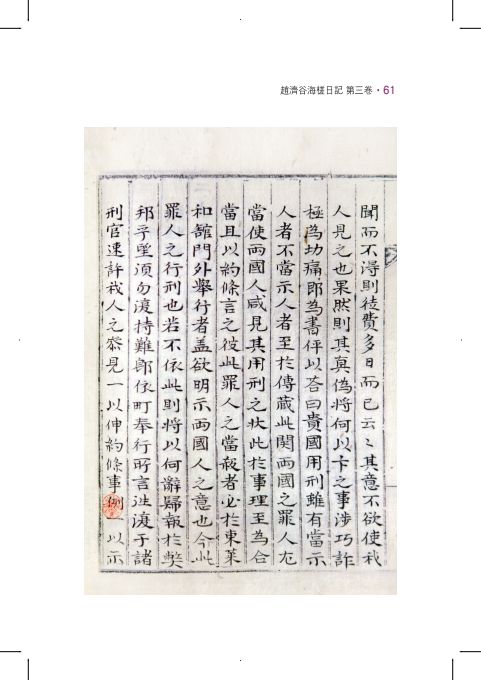 趙濟谷海槎日記 第三卷 · 61
聞而不得則徒費多日而已云云其意不欲使我
人見之也果然則其眞偽將何以卞之事涉巧詐
極為功痛即為書伻以答曰貴國用刑雖有當示
人者不當示人者至於傳藏此関両國之罪人尤
當使両國人咸見其用刑之状此於事理至為合
當且以約條言之彼此罪人之當殺者必於東萊
和舘門外舉行者盖欲明示両國人之意也今此
罪人之行刑也若不依此則將以何辭歸報於契
邦乎望須勿復持難郎依町奉行所言迬復于諸
刑官速許我人之叅見一以伸約條事例一以示